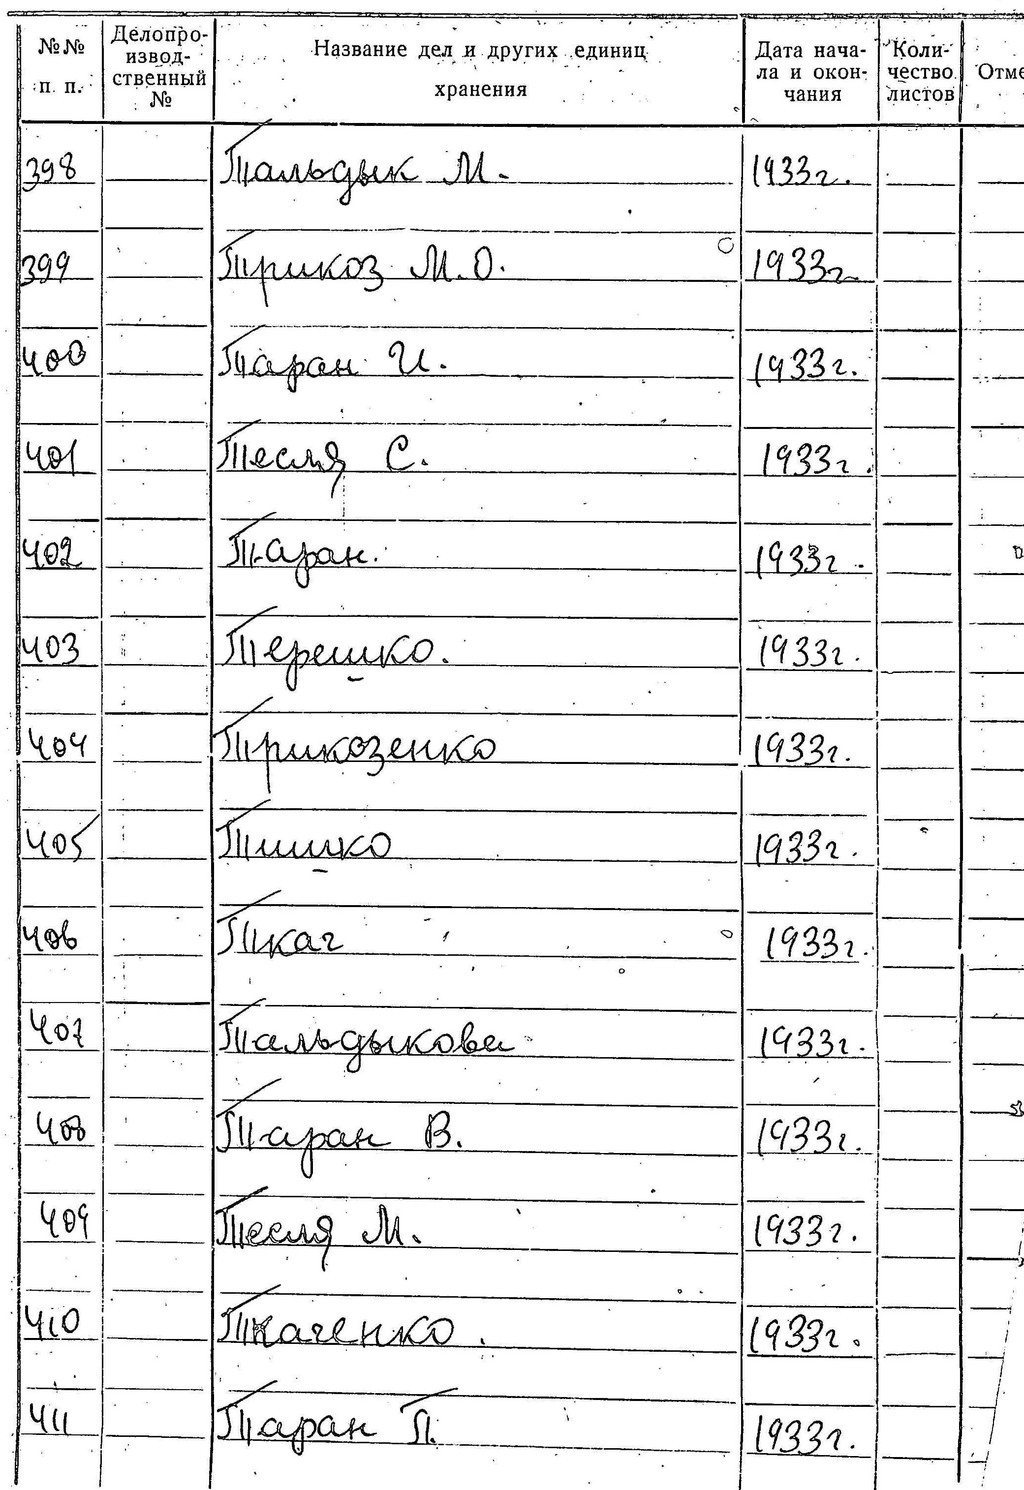 №№ п. п. Делопро-извод-ственный № Название дел и других единиц хранения Дата нача-ла и окон-чания Коли-чество листов Отме
398 Тальдык М. 1933г.
399 Трикоз М.О. 1933г
400 Таран И. 1933г.
401 Тесля С. 1933г.
402 Таран. 1933г.
403 Терешко. 1933г.
404 Трикозенко 1933г.
405 Тишко 1933г.
406 Ткач 1933г.
407 Тальдыкова 1933г.
408 Таран В. 1933г.
409 Тесля М. 1933г.
410 Ткаченко. 1933г.
411 Таран П. 1933г.